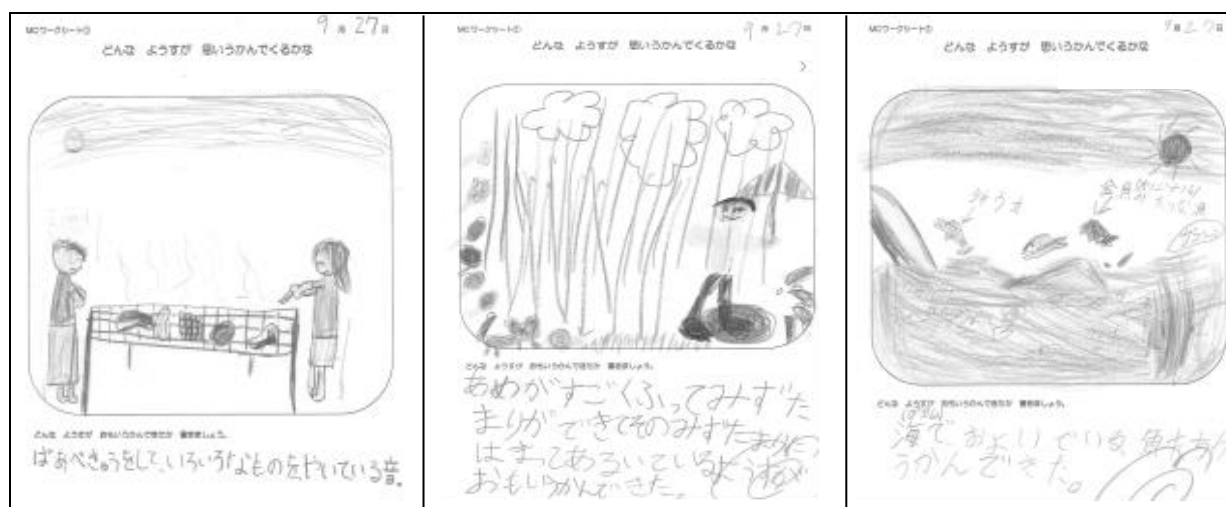 MCワークシート①
9月27日
どんな ようすが 思いうかんでくるかな
どんな ようすが おもいうかんできたか 書きましょう。
ばあべきゅうをして、いろいろなものをやいている音。
MCワークシート①
9月27日
どんな ようすが 思いうかんでくるかな
どんな ようすが おもいうかんできたか 書きましょう。
あめがすごくふってみずた
まりができてそのみずたまりに
はまってあるいているようすが
おもいうかんできた。
MCワークシート①
9月27日
どんな ようすが 思いうかんでくるかな
どんな ようすが おもいうかんできたか 書きましょう。
海でおよいでいる魚
うかんできた。